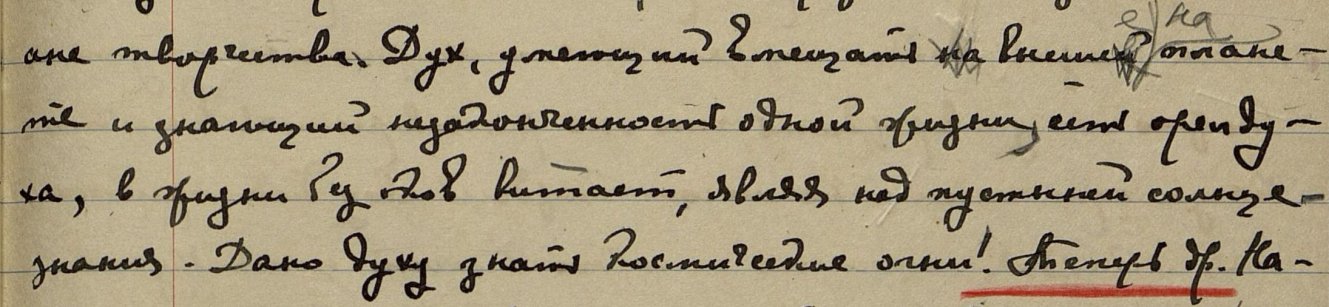 ане творчества. Дух, умеющий вмещать на внешней планете
те и знающий незаконченность одной жизни, есть орел ду-
ха, в жизни без оков витает, являя над пустыней солнце-
знания. Дано духу знать космические огни! Теперь др. На-